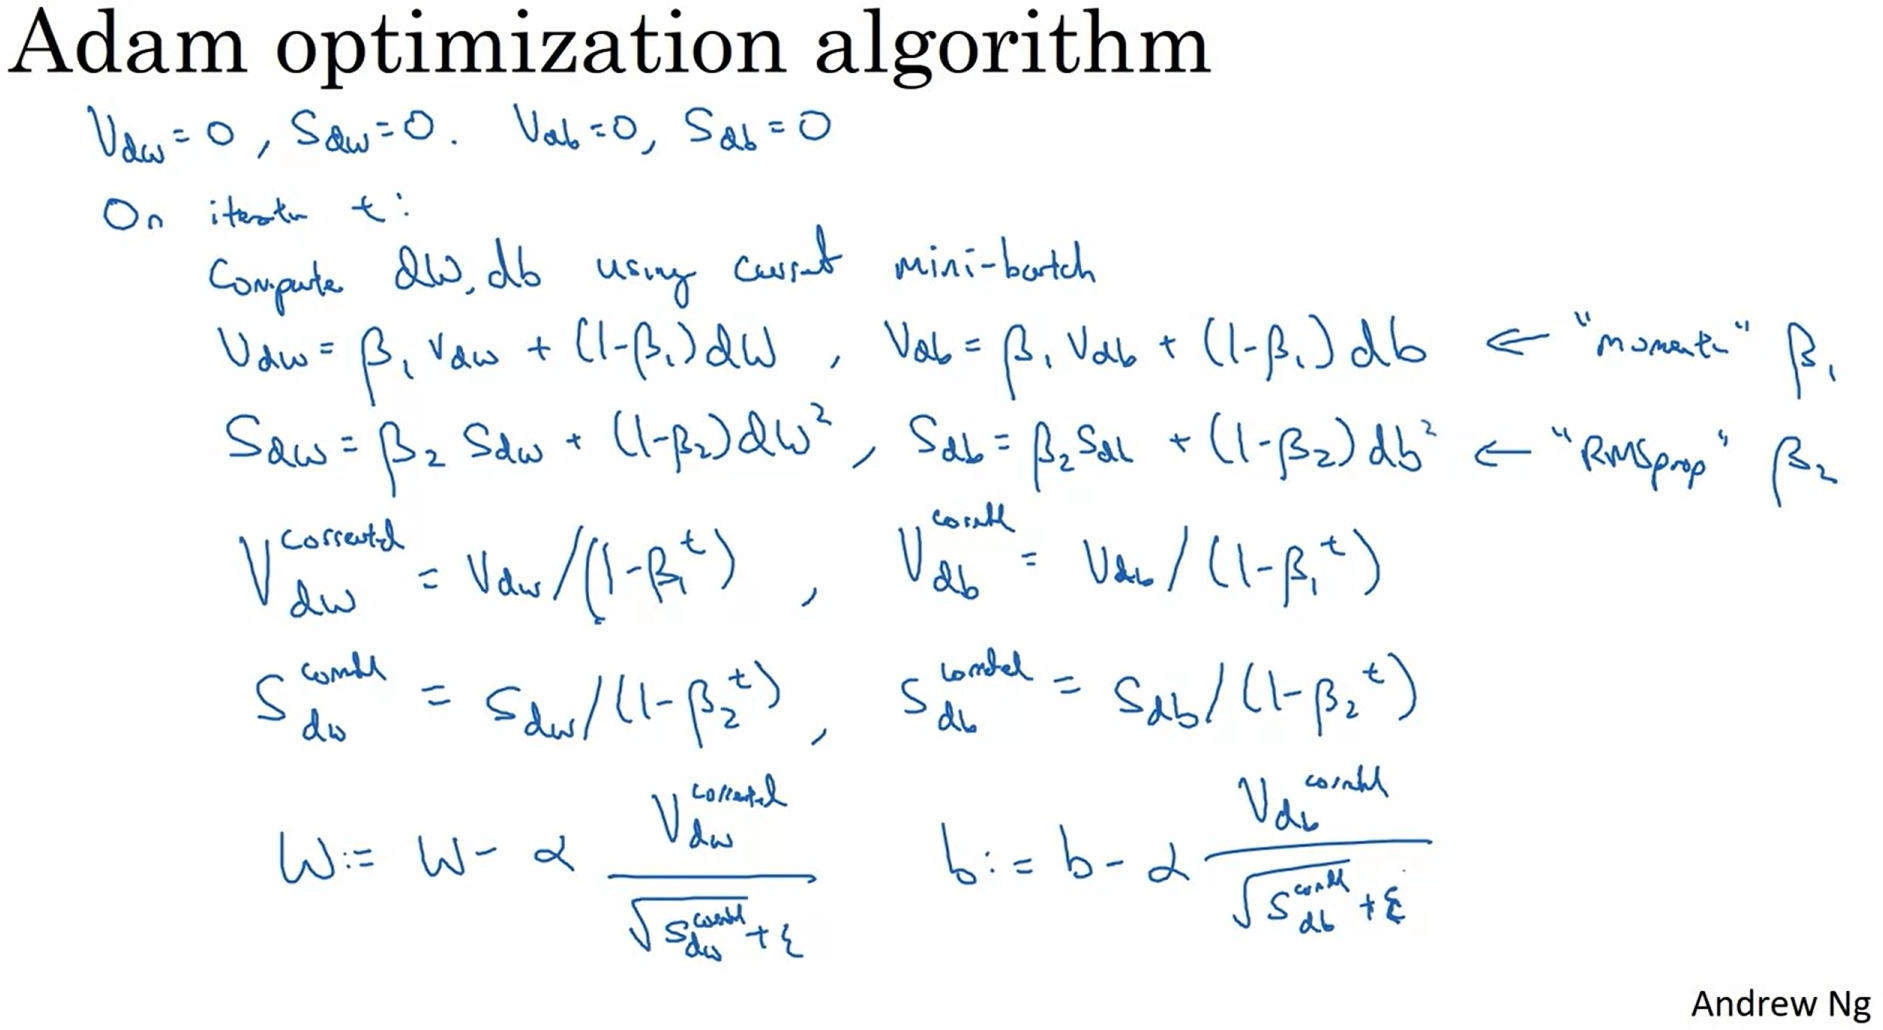 Adam optimization algorithm
V_dw = 0, S_dw = 0. V_db = 0, S_db = 0
On iteration t:
Compute dW, db using current mini-batch
V_dw = β₁ V_dw + (1-β₁) dW , V_db = β₁ V_db + (1-β₁) db ← "momentum" β₁
S_dw = β₂ S_dw + (1-β₂) dw² , S_db = β₂ S_db + (1-β₂) db² ← "RMSprop" β₂
V_dw^corrected = V_dw / (1-β₁^t) , V_db^corrected = V_db / (1-β₁^t)
S_dw^corrected = S_dw / (1-β₂^t) , S_db^corrected = S_db / (1-β₂^t)
W := W - α V_dw^corrected / (√S_dw^corrected + ε) b := b - α V_db^corrected / (√S_db^corrected + ε)
Andrew Ng